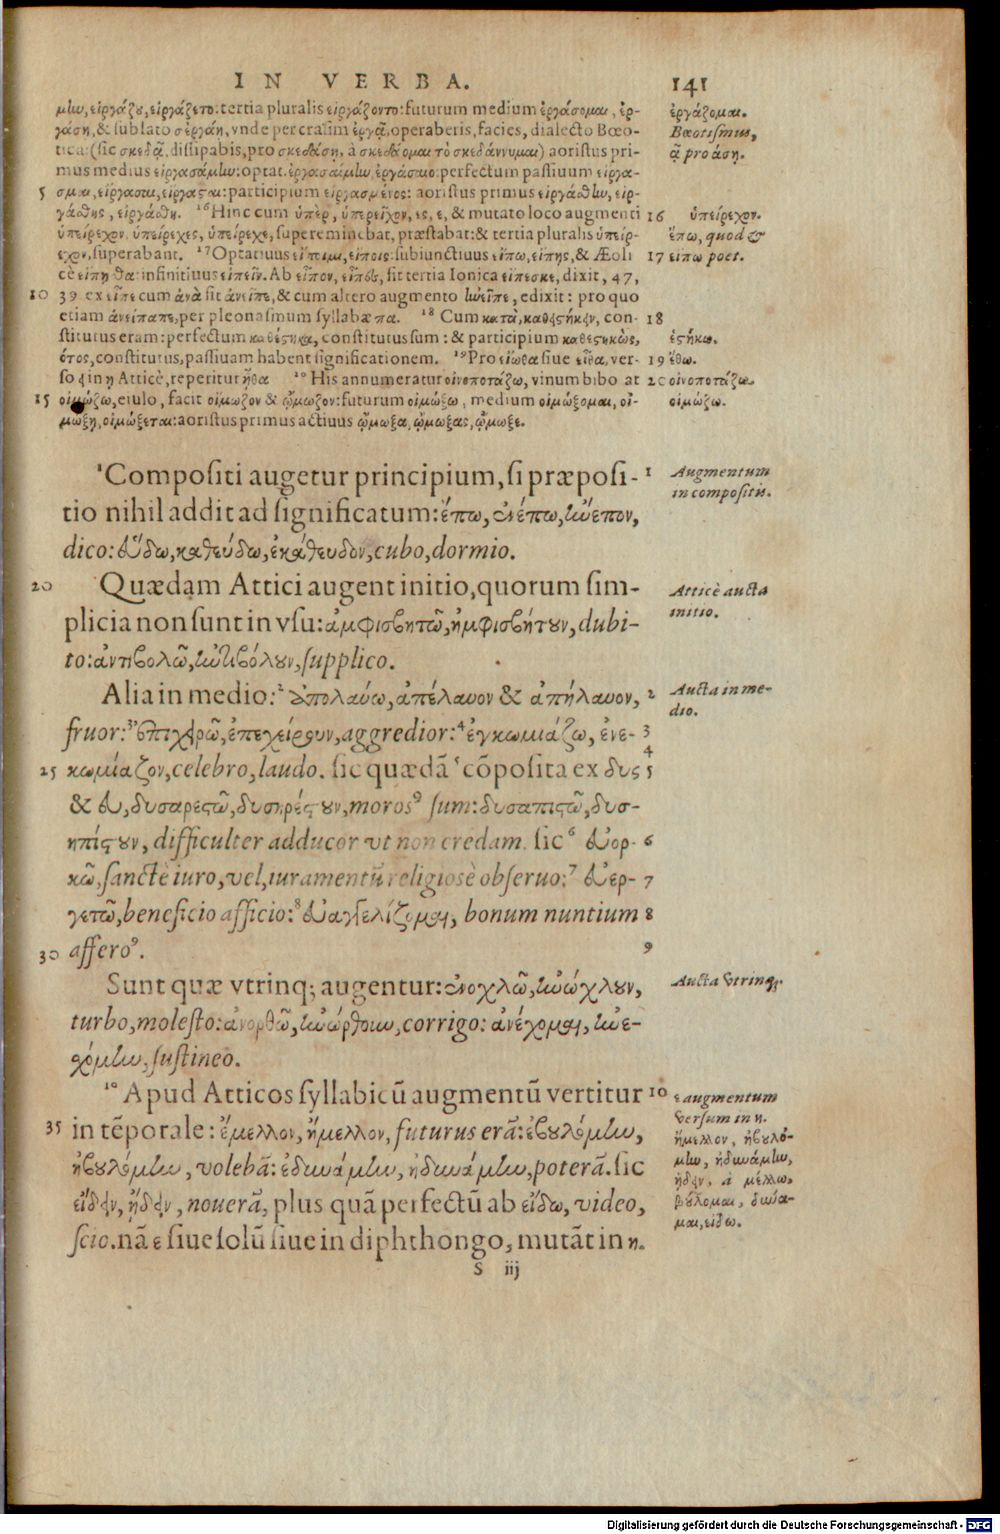 IN VERBA. 141
μην, εἰργάζου, εἰργάζετο: tertia pluralis εἰργάζοντο: futurum medium ἐργάσομαι, ἐρ-
γάση, & sublato σ ἐργάη, vnde per crasim ἐργᾷ, operaberis, facies, dialecto Bœo-
tica: (sic σκεδᾷ, dissipabis, pro σκεδάση, à σκεδάομαι τὸ σκεδάννυμαι) aoristus pri-
mus medius εἰργασάμην: optat. ἐργασαίμην, ἐργάσαιο: perfectum passiuum εἴργα-
5 σμαι, εἴργασαι, εἴργασται: participium εἰργασμένος: aoristus primus εἰργάσθην, εἰρ-
γάσθης, εἰργάσθη. 16 Hinc cum ὑπὲρ, ὑπερεῖχον, ες, ε, & mutato loco augmenti
ὑπείρεχον, ὑπείρεχες, ὑπείρεχε, supereminebat, præstabat: & tertia pluralis ὑπείρ-
εχον, superabant. 17 Optatiuus εἴποιμι, εἴποις: subiunctiuus εἴπω, εἴπης, & Æoli
cè εἴπησθα: infinitiuus εἰπεῖν. Ab εἶπον, εἶπες, fit tertia Ionica εἴπεσκε, dixit, 47,
10 39 ex εἶπε cum ἀνὰ fit ἀνεῖπε, & cum altero augmento ἠνεῖπε, edixit: pro quo
etiam ἀνείπαπε, per pleonasmum syllabæ πα. 18 Cum κατὰ, καθεστήκειν, con-
stitutus eram: perfectum καθέστηκα, constitutus sum: & participium καθεστηκὼς,
ότος, constitutus, passiuam habent significationem. 19 Pro εἴωθα siue εἶθα, ver-
so ει in η Atticè, reperitur ἦθα 20 His annumeratur οἰνοποτάζω, vinum bibo at
15 οἰμώζω, eiulo, facit οἴμωζον & ᾤμωζον: futurum οἰμώξω, medium οἰμώξομαι, οἰ-
μώξη, οἰμώξεται: aoristus primus actiuus ᾤμωξα, ᾤμωξας, ᾤμωξε.
ἐργάζομαι.
Bœotismus,
ᾷ pro άση.
16 ὑπείρεχον.
ἔπω, quod &
17 εἴπω poet.
18
ἑστήκω.
19 ἔθω.
20 οἰνοποτάζω.
οἰμώζω.
1 Compositi augetur principium, si præposi-
tio nihil addit ad significatum: ἔπω, ἐνέπω, ἤνεπον,
dico: εὕδω, καθεύδω, ἐκάθευδον, cubo, dormio.
20 Quædam Attici augent initio, quorum sim-
plicia non sunt in vsu: ἀμφισβητῶ, ἠμφισβήτουν, dubi-
to: ἀντιβολῶ, ἠντιβόλουν, supplico.
Alia in medio: 2 ἀπολαύω, ἀπέλαυον & ἀπήλαυον,
fruor: 3 ἐπιχειρῶ, ἐπεχείρουν, aggredior: 4 ἐγκωμιάζω, ἐνε-
25 κωμίαζον, celebro, laudo. sic quædā 5 cōposita ex δυς
& εὖ, δυσαρεστῶ, δυσηρέστουν, moros9 sum: δυσαπιστῶ, δυσ-
ηπίστουν, difficulter adducor vt non credam. sic 6 εὐορ-
κῶ, sanctè iuro, vel, iuramentū religiosè obseruo: 7 εὐερ-
γετῶ, beneficio afficio: 8 εὐαγγελίζομαι, bonum nuntium
30 affero9.
Sunt quæ vtrinq; augentur: ἐνοχλῶ, ἠνώχλουν,
turbo, molesto: ἀνορθῶ, ἠνώρθουν, corrigo: ἀνέχομαι, ἠνε-
χόμην, sustineo.
10 Apud Atticos syllabicū augmentū vertitur
35 in tēporale: ἔμελλον, ἤμελλον, futurus erā: ἐβουλόμην,
ἠβουλόμην, volebā: ἐδυνάμην, ἠδυνάμην, poterā. sic
εἴδειν, ᾔδειν, noverā, plus quā perfectū ab εἴδω, video,
scio. nā ε siue solū siue in diphthongo, mutāt in η.
1 Augmentum
in compositis.
Atticè aucta
initio.
2 Aucta in me-
dio.
3
4
5
6
7
8
9
Aucta vtrinq;.
10 ε augmentum
versum in η.
ἤμελλον, ἠβουλό-
μην, ἠδυνάμην,
ᾔδειν, à μέλλω,
βούλομαι, δύνα-
μαι, εἴδω.
S iij
Digitalisierung gefördert durch die Deutsche Forschungsgemeinschaft - DFG